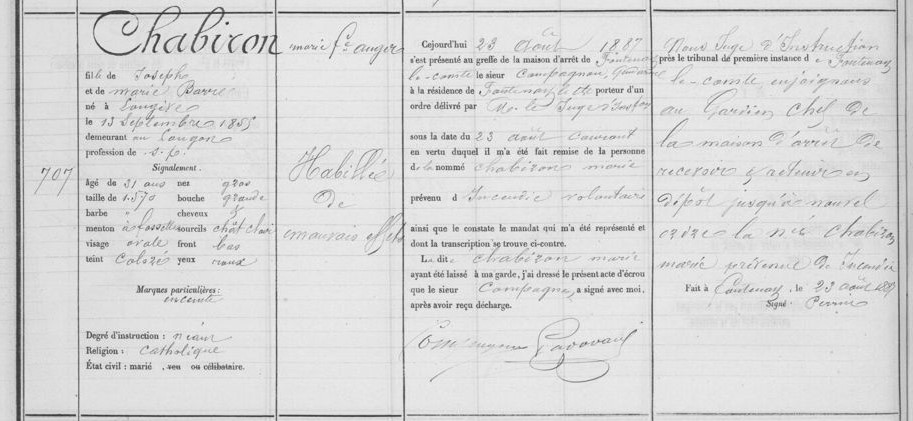 707
Chabiron
fille de Joseph
et de marie Barre
né à Longèves
le 13 Septembre 1855
demeurant au Langon
profession de s.p.
Signalement
âgé de 31 ans nez gros
taille de 1.570 bouche grande
barbe " cheveux
menton à fossette sourcils chât clair
visage ovale front bas
teint coloré yeux roux
Marques particulières:
enceinte
Degré d'instruction : néant
Religion : Catholique
État civil : marié, veu ou célibataire.
marie fe auger
Habillée
de
mauvais effets
Cejourd'hui 23 Août 1887
s'est présenté au greffe de la maison d'arrêt de Fontenay
le-comte le sieur Campagnan, Gendarme
à la résidence de Fontenay le cte porteur d'un
ordre délivré par Mr le Juge d'Instron
sous la date du 23 août courant
en vertu duquel il m'a été fait remise de la personne
de la nommé chabiron marie
prévenu d'Incendie volontaire
ainsi que le constate le mandat qui m'a été représenté et
dont la transcription se trouve ci-contre.
La dite chabiron marie
ayant été laissé à ma garde, j'ai dressé le présent acte d'écrou
que le sieur Campagnan a signé avec moi,
après avoir reçu décharge.
Nous Juge d'Instruction
près le tribunal de première instance de Fontenay
le-comte enjoignons
au Gardien Chef de
la maison d'arrêt de
recevoir & retenir en
dépôt jusqu'à nouvel
ordre la née Chabiron
marie prévenue de Incendie
Fait à Fontenay, le 23 août 1887
Signé